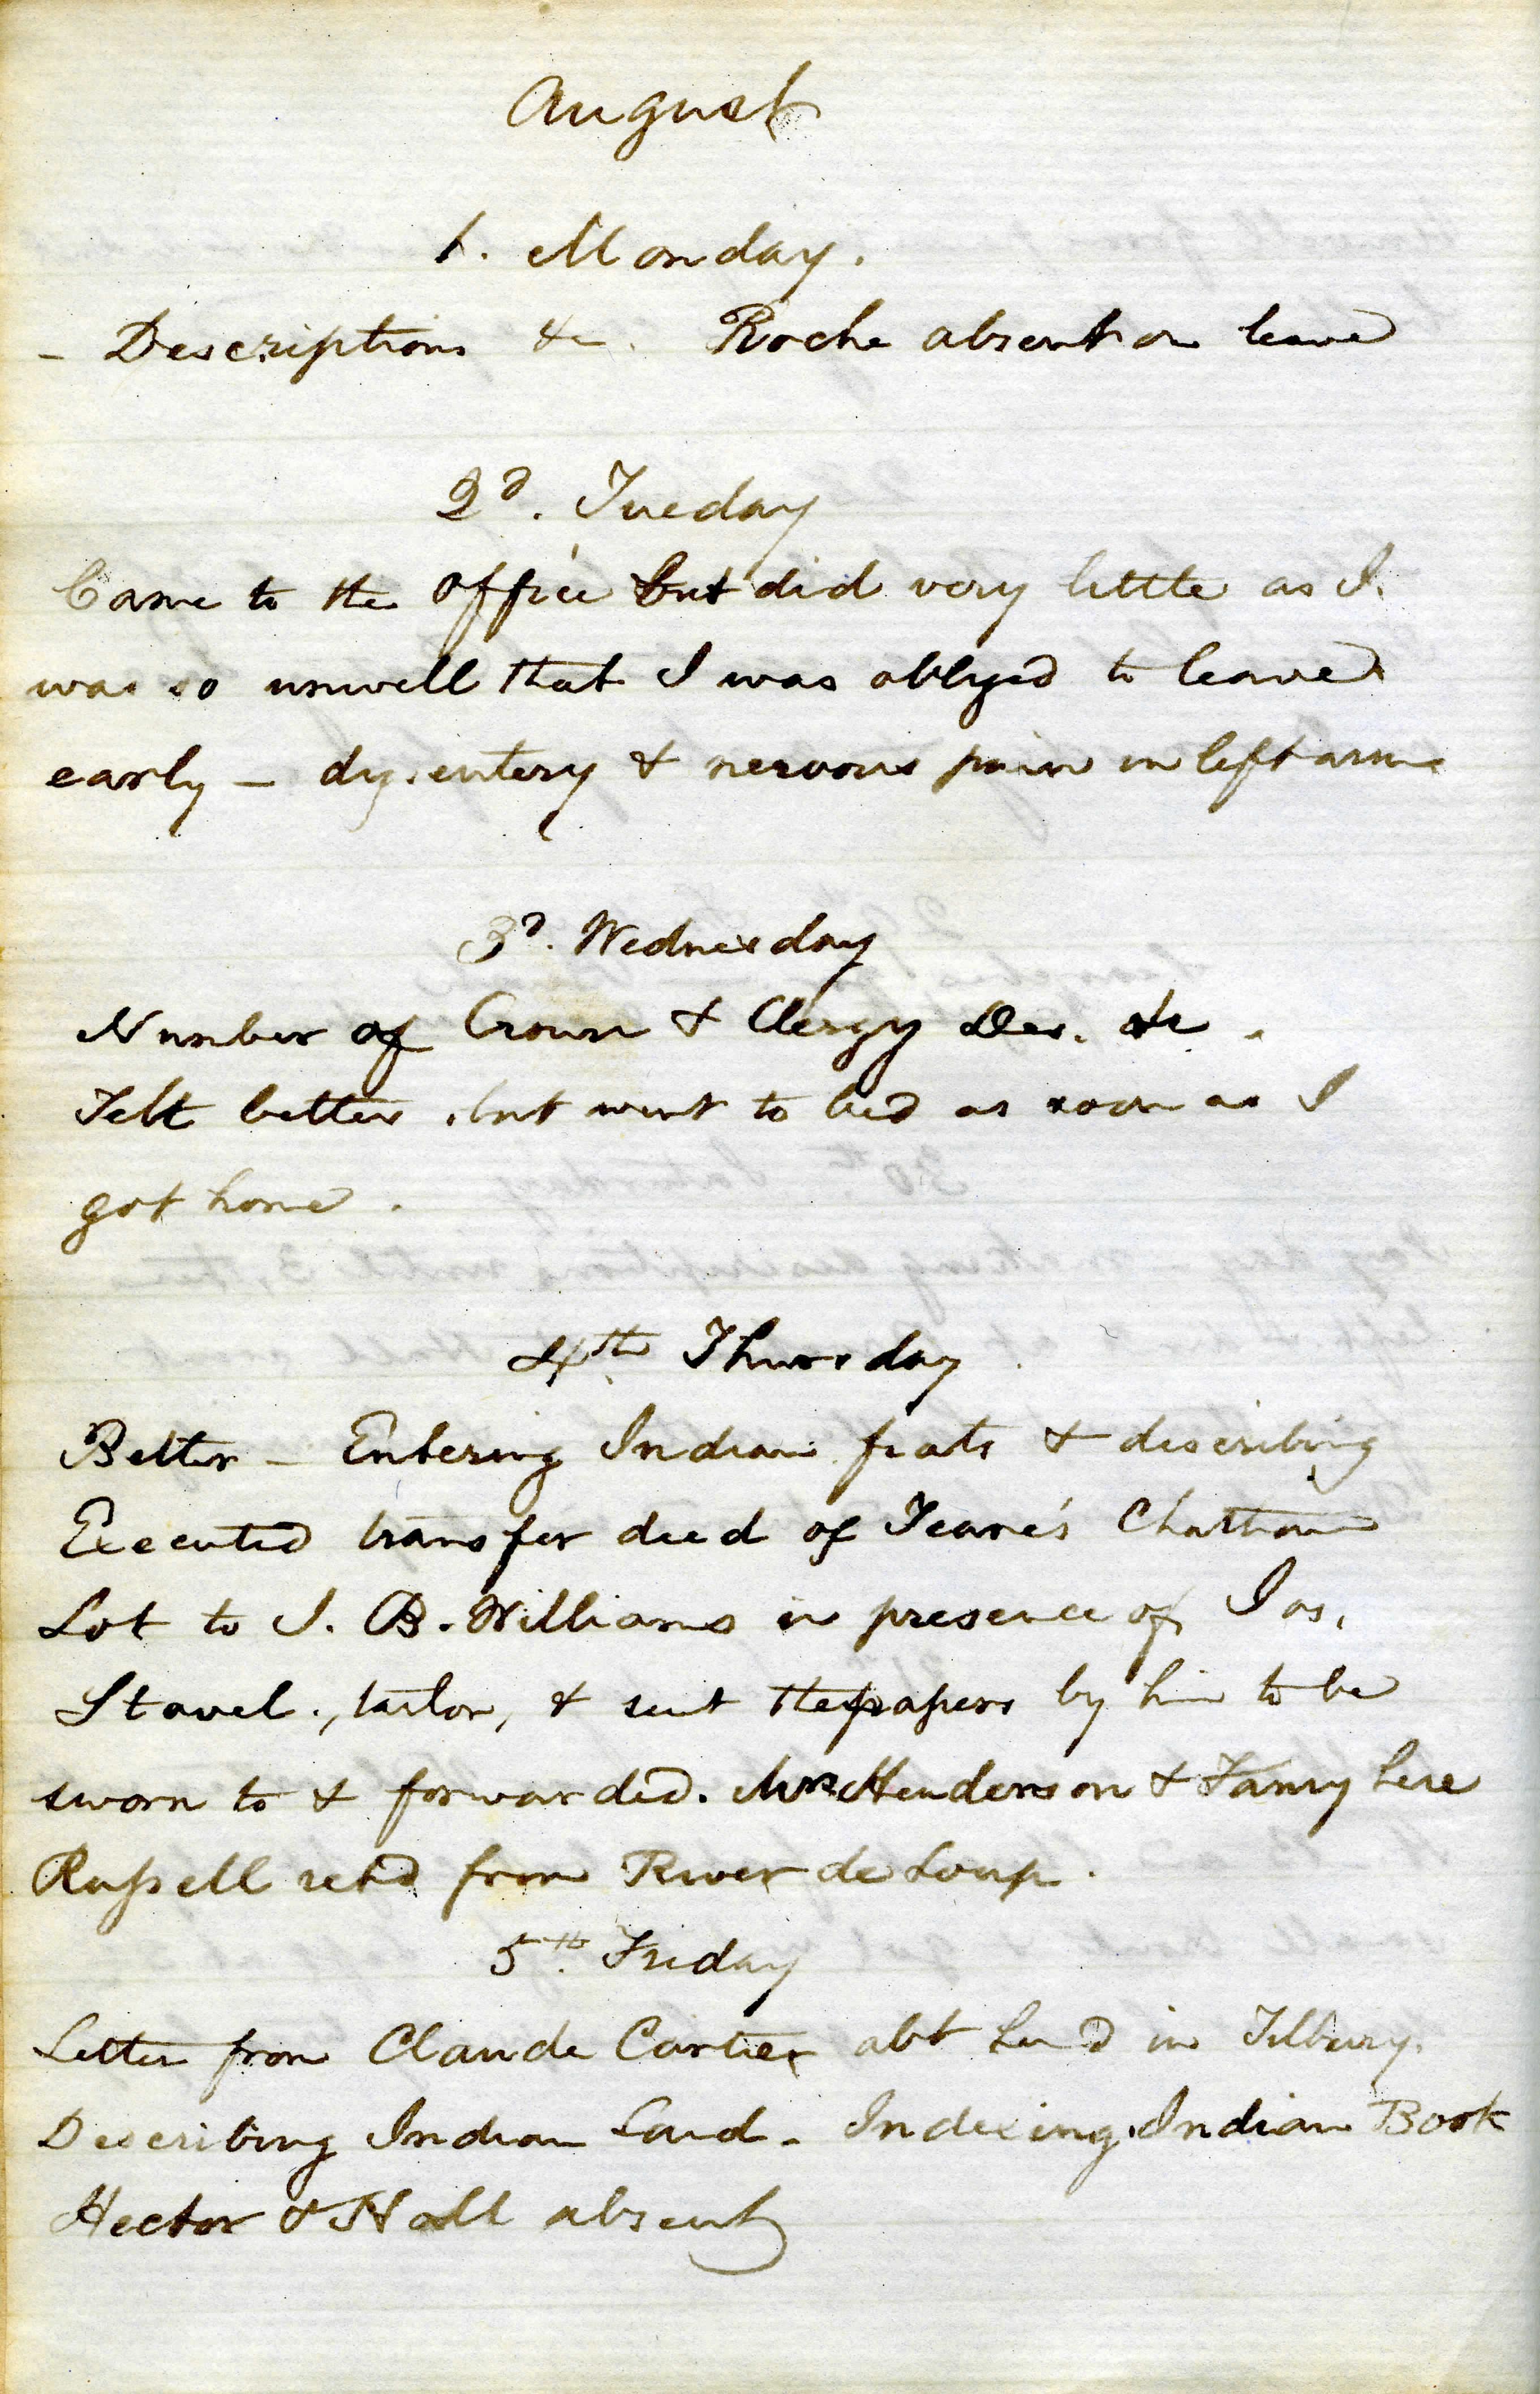 August
1. Monday.
- Descriptions &c. Roche absent on leave
2d. Tueday
Came to the office but did very little as I
was so unwell that I was obliged to leave
early - dysentery & nervous pain in left arm
3d. Wednesday
Number of Crown & Clergy Des. &c.
Felt better, but went to bed as soon as I
got home.
4th Thursday
Better - Entering Indian fiats & describing
Executed transfer deed of Chatham
Lot to J. B. Williams in presence of Jas.
Stovel, tailor, & sent the papers by him to be
sworn to & forwarded. Mrs Henderson & Fanny here
Russell retd from River de Loup.
5th. Friday
Letter from Claude Cartier abt land in Tilbury.
Describing Indian Land - Indexing Indian Book
Hector & Nall absent